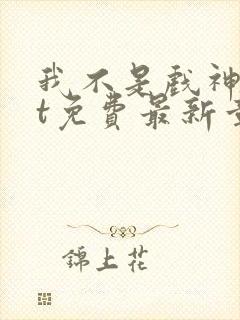 我不是戲神
t免費最新章
錦上花